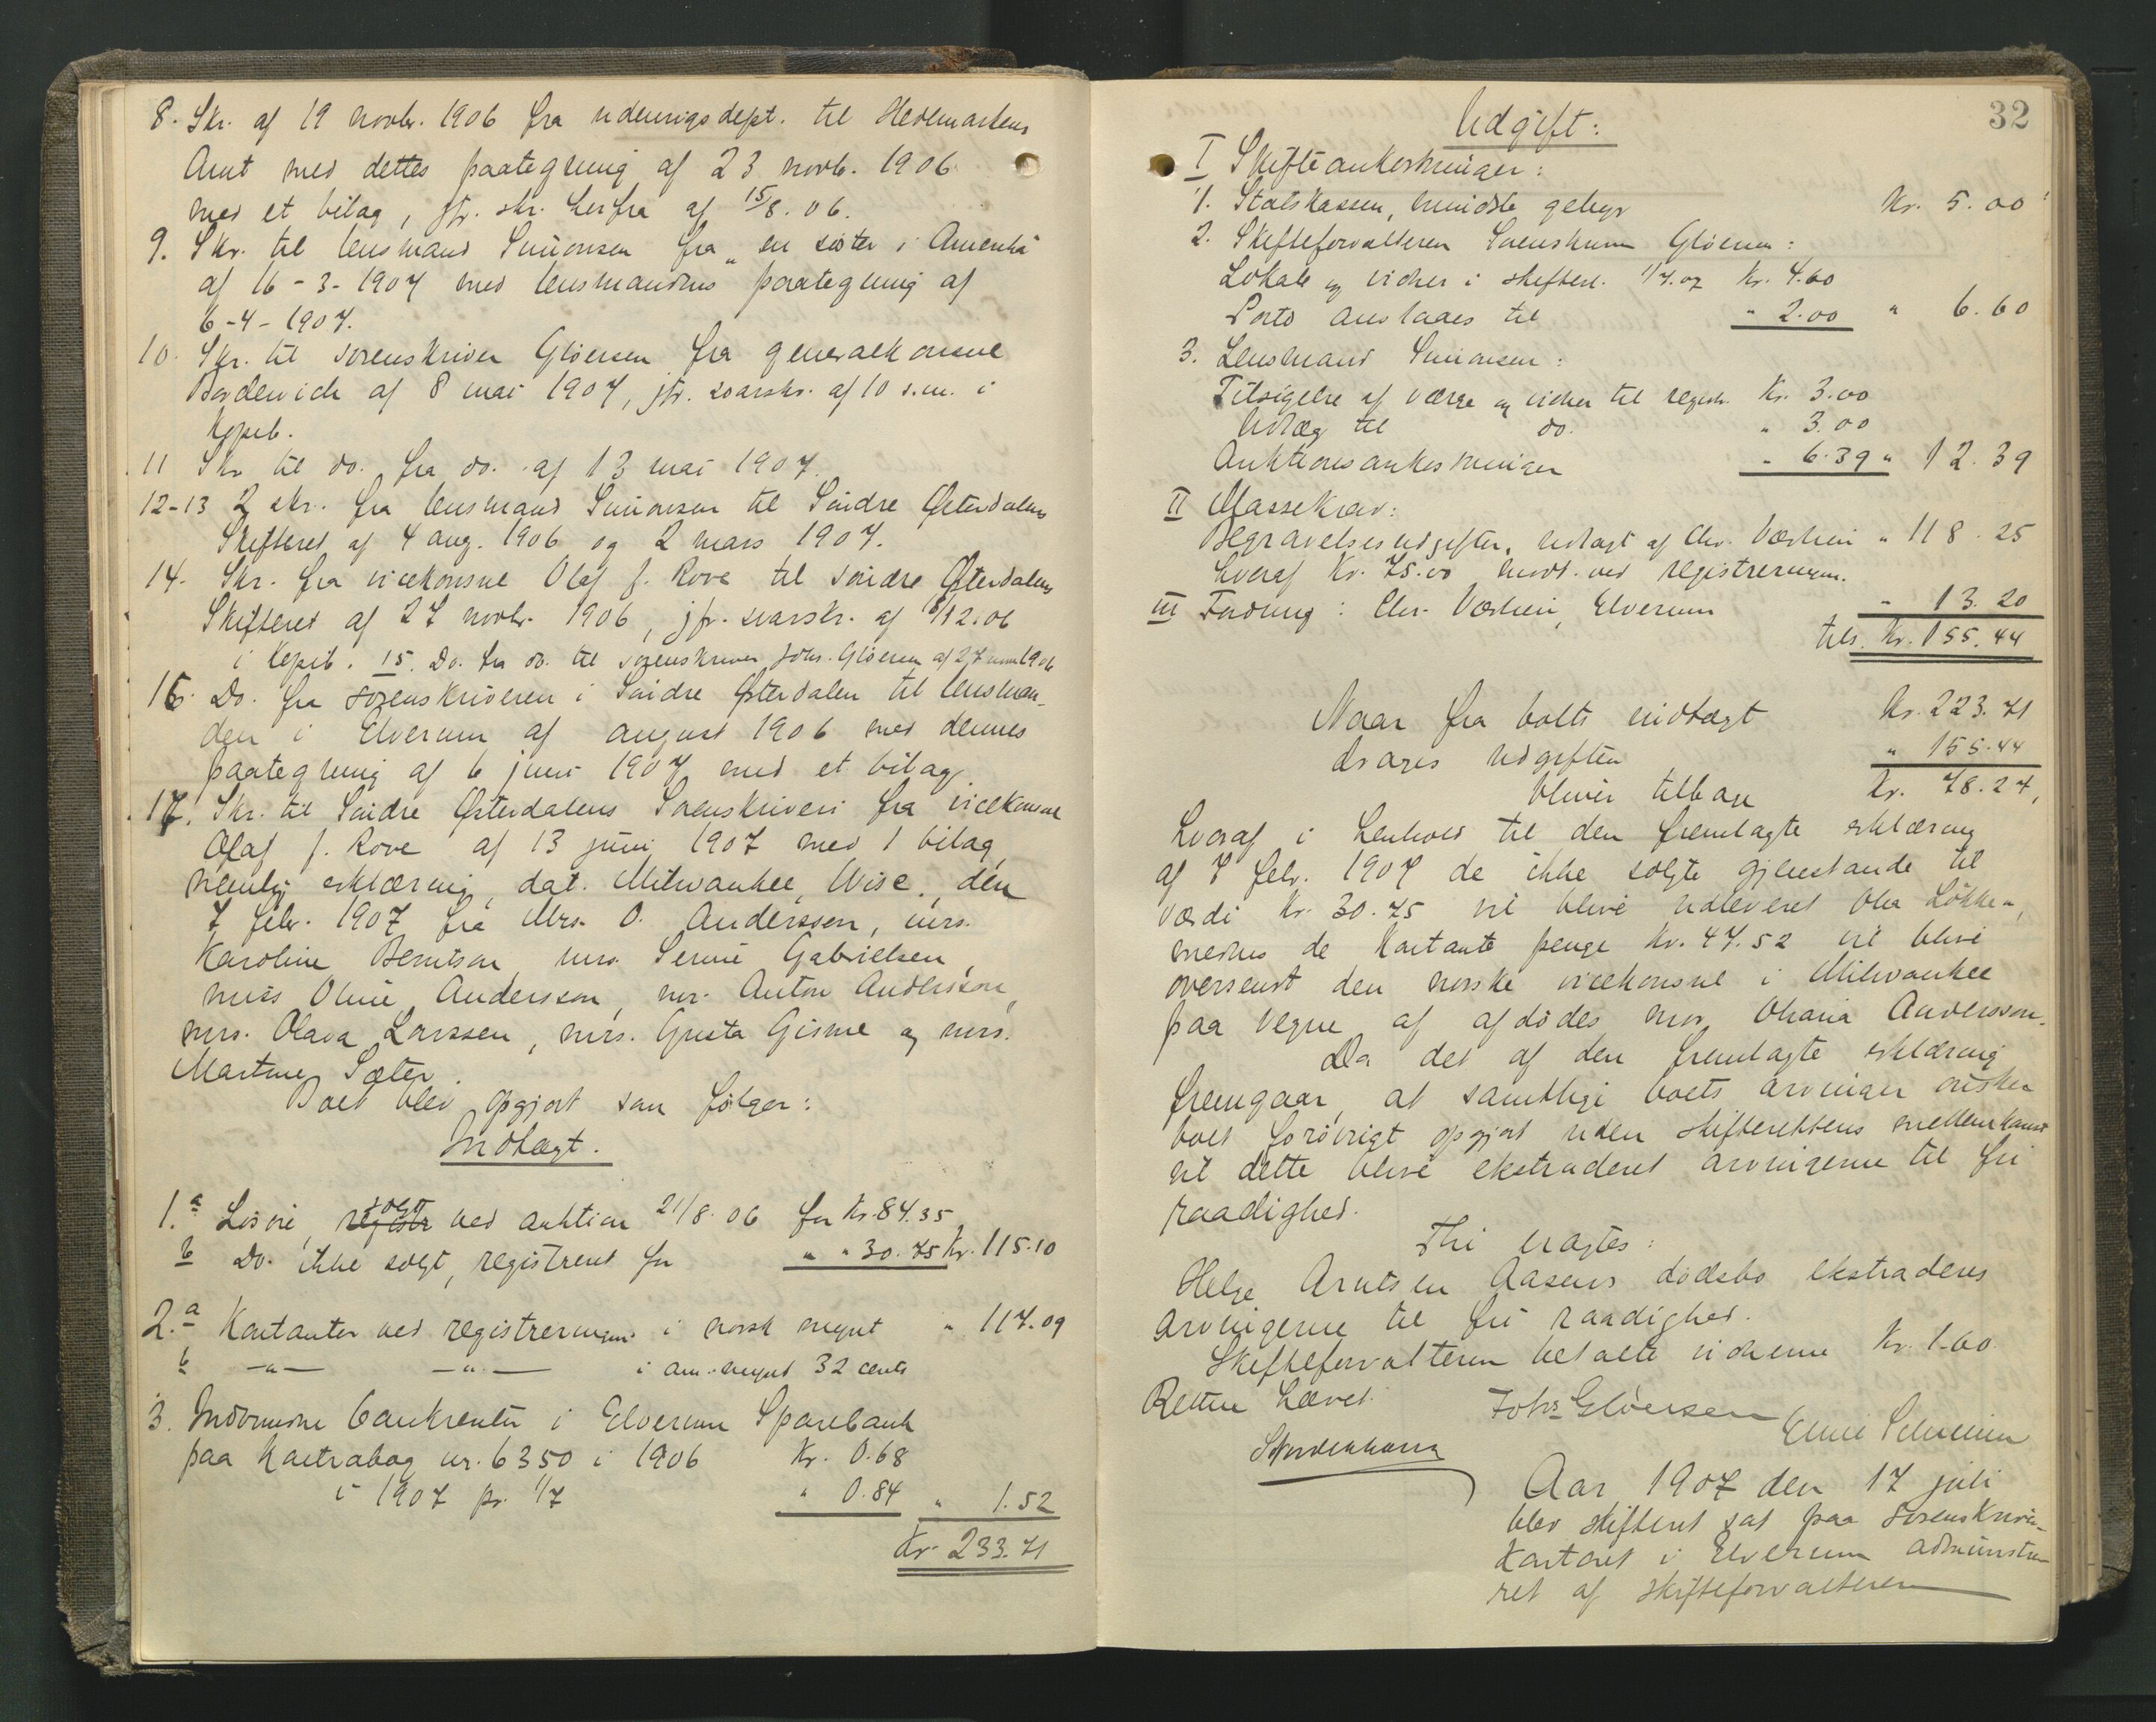 8. Skr. af 19 novbr. 1906 fra udenrigsdept. til Hedemarkens
Amt med dettes paategning af 23 novb. 1906
med et bilag, jfr. skr. herfra af 15/8. 06.
9. Skr. til lensmand Simonsen fra "en søster i Amerika
af 16-3-1907 med lensmandens paategning af
6-4-1907.
10. Skr. til sorenskriver Gløersen fra generalkonsul
Bordewich af 8 mai 1907, jfr. svarskr. af 10 s.m. i
kopib.
11 Skr til do. fra do. af 13 mai 1907.
12-13 2 skr. fra lensmand Simonsen til Søndre Østerdalens
Skifteret af 4 aug. 1906 og 2 mars 1907.
14. Skr. fra vicekonsul Olaf J. Rove til søndre Østerdalens
Skifteret af 27 novbr. 1906, jfr. svarskr. af /12.06
i kopib. 15. Do. fra do. til sorenskriver Johs. Gløersen af 27 1906
16. Do. fra sorenskriveren i Søndre Østerdalen til lensman-
den i Elverum af august 1906 med dennes
paategning af 6 juni 1907 med et bilag.
17. Skr. til Søndre Østerdalens Sorenskriveri fra vicekonsul
Olaf J. Rove af 13 juni 1907 med 1 bilag,
nemlig erklæring, dat. Milwaukee, Wisc., den
7 febr. 1907 fra Mrs. O. Anderssen, mrs.
Karoline Berntsen, mrs. Serine Gabrielsen,
miss Oline Andersson, mr. Anton Andersson,
mrs. Olava Larssen, mrs. Gusta Gisme og mrs.
Martine Sæter.
Boet blev opgjort som følger:
Indtægt.
1.a Løsøre, registr solgt ved auktion 21/8 06 for Kr. 84.35
b Do. ikke solgt, registreret for " " 30.75 Kr. 115.10
2.a Kontanter ved registreringen i norsk mynt " 117.09
b -"- -"- i am. mynt 32 cents
3. Indvundne bankrenter i Elverum Sparebank
paa kontrabog nr. 6350 i 1906 Kr. 0.68
i 1907 pr. 1/7 " 0.84 " 1.52
Kr. 233.71
32
Udgift:
I Skifteomkostninger:
1. Statskassen, mindste gebyr Kr. 5.00
2. Skifteforvalteren Sorenskriver Gløersen:
Lokale og vidner i skifteret. 1/7.07 Kr. 4.60
Porto anslaaes til " 2.00 " 6.60
3. Lensmand Simonsen:
Tilsigelse af værge og vidner til registr. Kr. 3.00
Udlæg til do. " 3.00
Auktionsomkostninger " 6.39 " 12.39
II Massekrav:
Begravelsesudgifter, udlagt af Chr. Væstlien " 118.25
hvoraf Kr. 75.00 modt. ved registreringen.
III Fordring: Chr. Væstlien, Elverum " 13.20
tils. Kr. 155.44
Naar fra boets indtægt Kr. 223.71
drages udgiften " 155.44
bliver tilbage Kr. 78.27,
hvoraf i henhold til den fremlagte erklæring
af 7 febr. 1907 de ikke solgte gjenstande til
værdi Kr. 30.75 vil blive udleveret Løkken,
medens de kontante penge Kr. 47.52 vil blive
oversendt den norske vicekonsul i Milwaukee
paa vegne af afdødes mor Andersson.
Da det af den fremlagte erklæring
fremgaar, at samtlige boets arvinger ønsker
boet forøvrigt opgjort uden skifterettens mellemkomst
vil dette blive ekstraderet arvingerne til fri
raadighed.
Thi eragtes:
Helge Arntsen Aasens dødsbo ekstraderes
arvingerne til fri raadighed.
Skifteforvalteren betalte vidnerne Kr. 1.60
Retten hævet.
Johs Gløersen
Aar 1907 den 17 juli
blev skifteret sat paa Sorenskriver-
kontoret i Elverum administre-
ret af skifteforvalteren